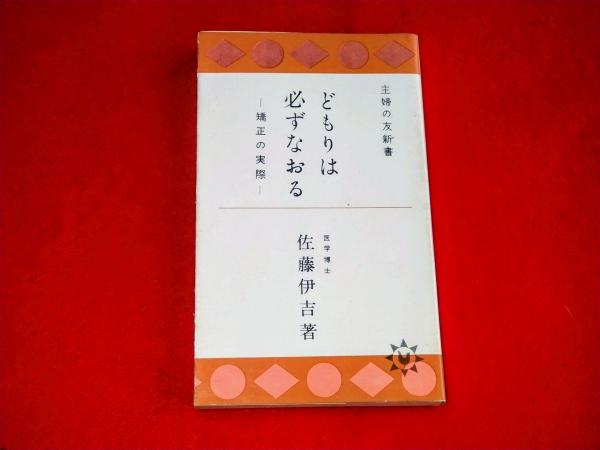 主婦の友新書
どもりは
必ずなおる
―矯正の実際―
医学博士
佐藤伊吉著